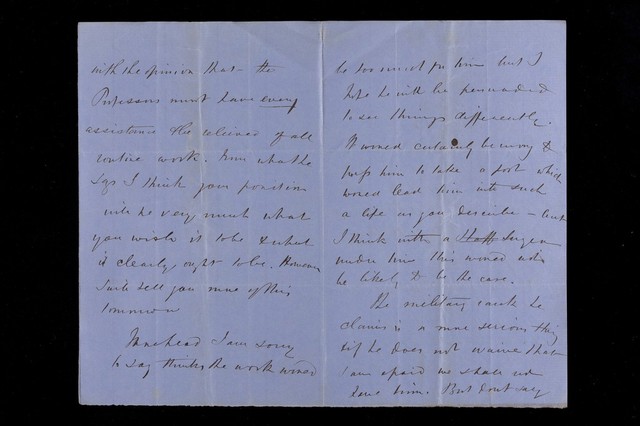 with the opinion that the
Professors must have every
assistance & be relieved of all
routine work. From what he
says I think your position
will be very much what
you wish it to be & what
it clearly ought to be. However
I will tell you more of this
tomorrow
I am sorry
to say thinks the work would
be too much for him but I
hope he will be persuaded
to see things differently.
It would certainly be wrong to
press him to take a post which
would lead him into such
a life as you describe - but
I think with a Staff Surgeon
under him this would not
be likely to be the case.
The military rank he
claims is a more serious thing
& if he does not waive that
I am afraid we shall not
have him. But don't say